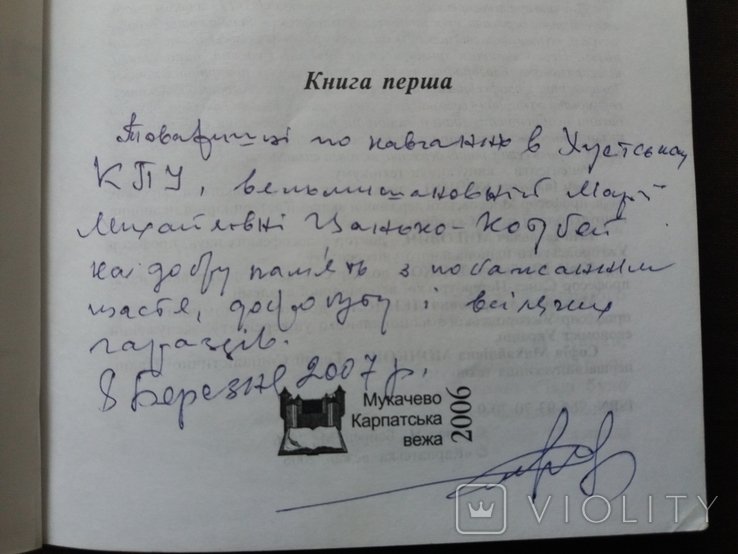 Книга перша
Товаришці по навчанню в Хустському
КПУ, вельмишановній Марії
Михайлівні Цанько-Котубей
на добру пам'ять з побажанням
щастя, добробуту і всіляких
гараздів.
8 Березня 2007 р.
Мукачево
Карпатська
вежа
2006
VIOLITY